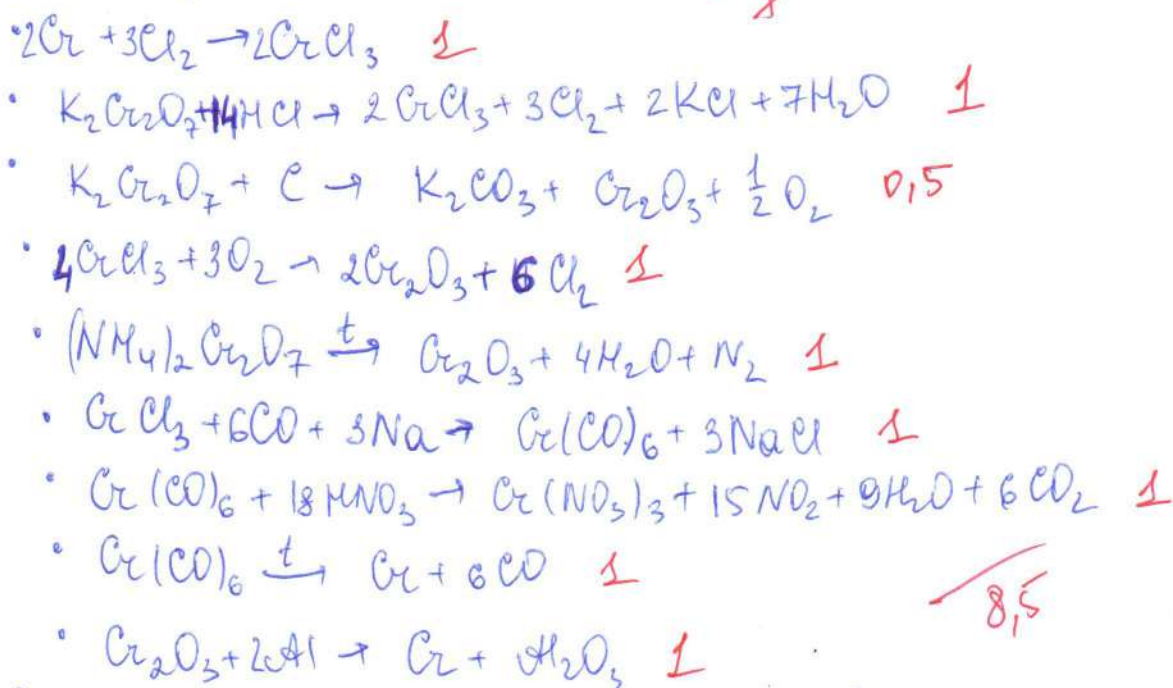 1
• 2Cr + 3Cl₂ → 2CrCl₃ 1
• K₂Cr₂O₇ + 14HCl → 2CrCl₃ + 3Cl₂ + 2KCl + 7H₂O 1
• K₂Cr₂O₇ + C → K₂CO₃ + Cr₂O₃ + ½O₂ 0,5
• 4CrCl₃ + 3O₂ → 2Cr₂O₃ + 6Cl₂ 1
• (NH₄)₂Cr₂O₇ →(t) Cr₂O₃ + 4H₂O + N₂ 1
• CrCl₃ + 6CO + 3Na → Cr(CO)₆ + 3NaCl 1
• Cr(CO)₆ + 18HNO₃ → Cr(NO₃)₃ + 15NO₂ + 9H₂O + 6CO₂ 1
• Cr(CO)₆ →(t) Cr + 6CO 1
8,5
• Cr₂O₃ + 2Al → Cr + Al₂O₃ 1